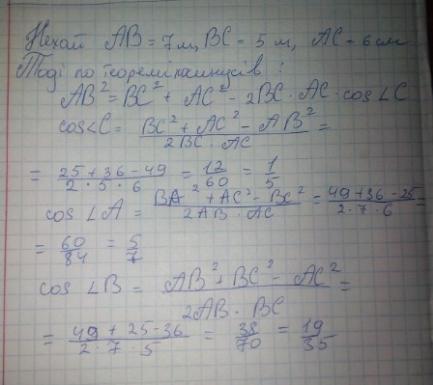 Нехай AB = 7 м, BC = 5 м, AC = 6 см
Тоді по теоремі косинусів :
AB² = BC² + AC² - 2BC · AC · cos∠C
cos∠C = (BC² + AC² - AB²)/(2BC · AC) =
= (25 + 36 - 49)/(2 · 5 · 6) = 12/60 = 1/5
cos ∠A = (BA² + AC² - BC²)/(2AB · AC) = (49 + 36 - 25)/(2 · 7 · 6) =
= 60/84 = 5/7
cos ∠B = (AB² + BC² - AC²)/(2AB · BC) =
= (49 + 25 - 36)/(2 · 7 · 5) = 38/70 = 19/35